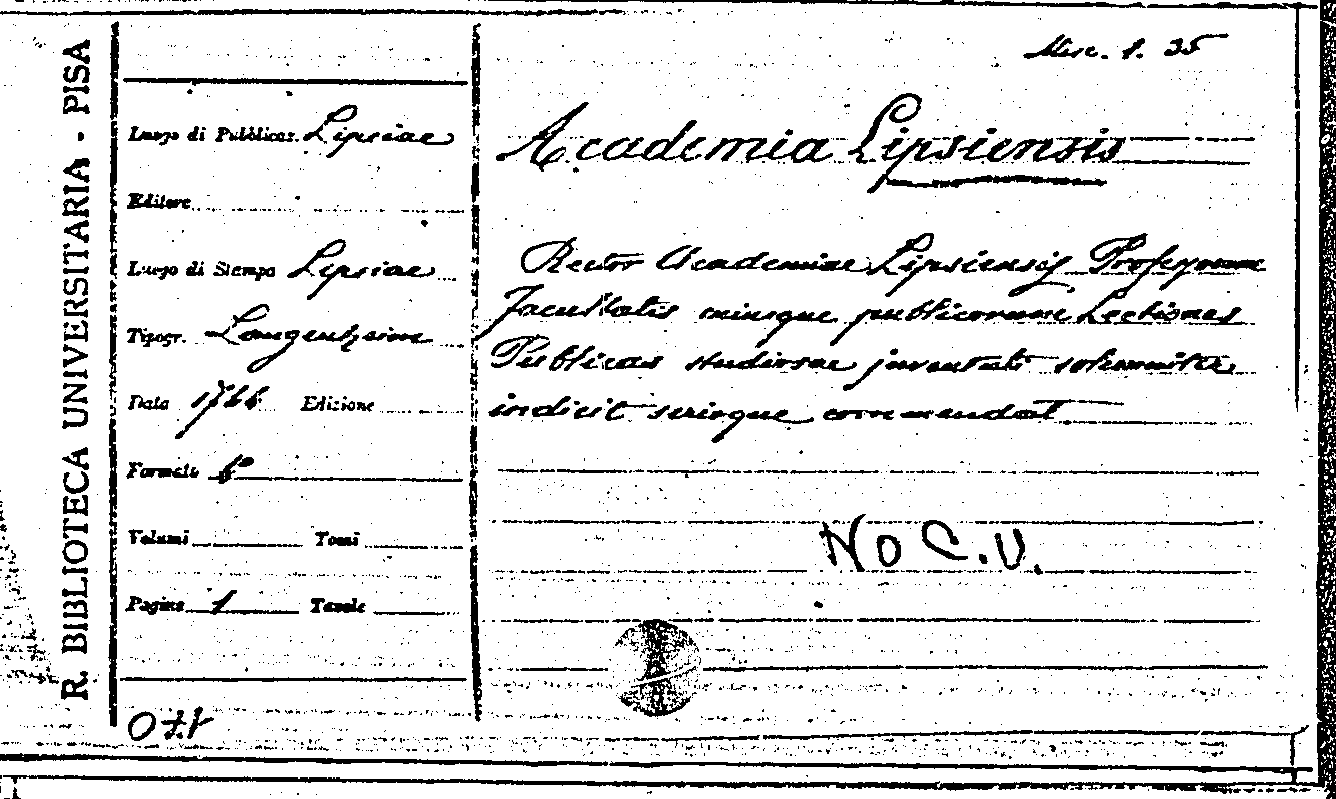 Misc. 1. 35
R. BIBLIOTECA UNIVERSITARIA - PISA
Luogo di Pubblicaz. Lipsiae
Editore
Luogo di Stampa Lipsiae
Tipogr. Langenheim
Data 1766 Edizione
Formato
Volumi Tomi
Pagine 1 Tavole
Academia Lipsiensis
Rector Academiae Lipsiensis Professorum
Facultatis cuiusque publicorum Lectiones
Publicas studiosae juventuti solemniter
indicit serioque commendat
No C.V.